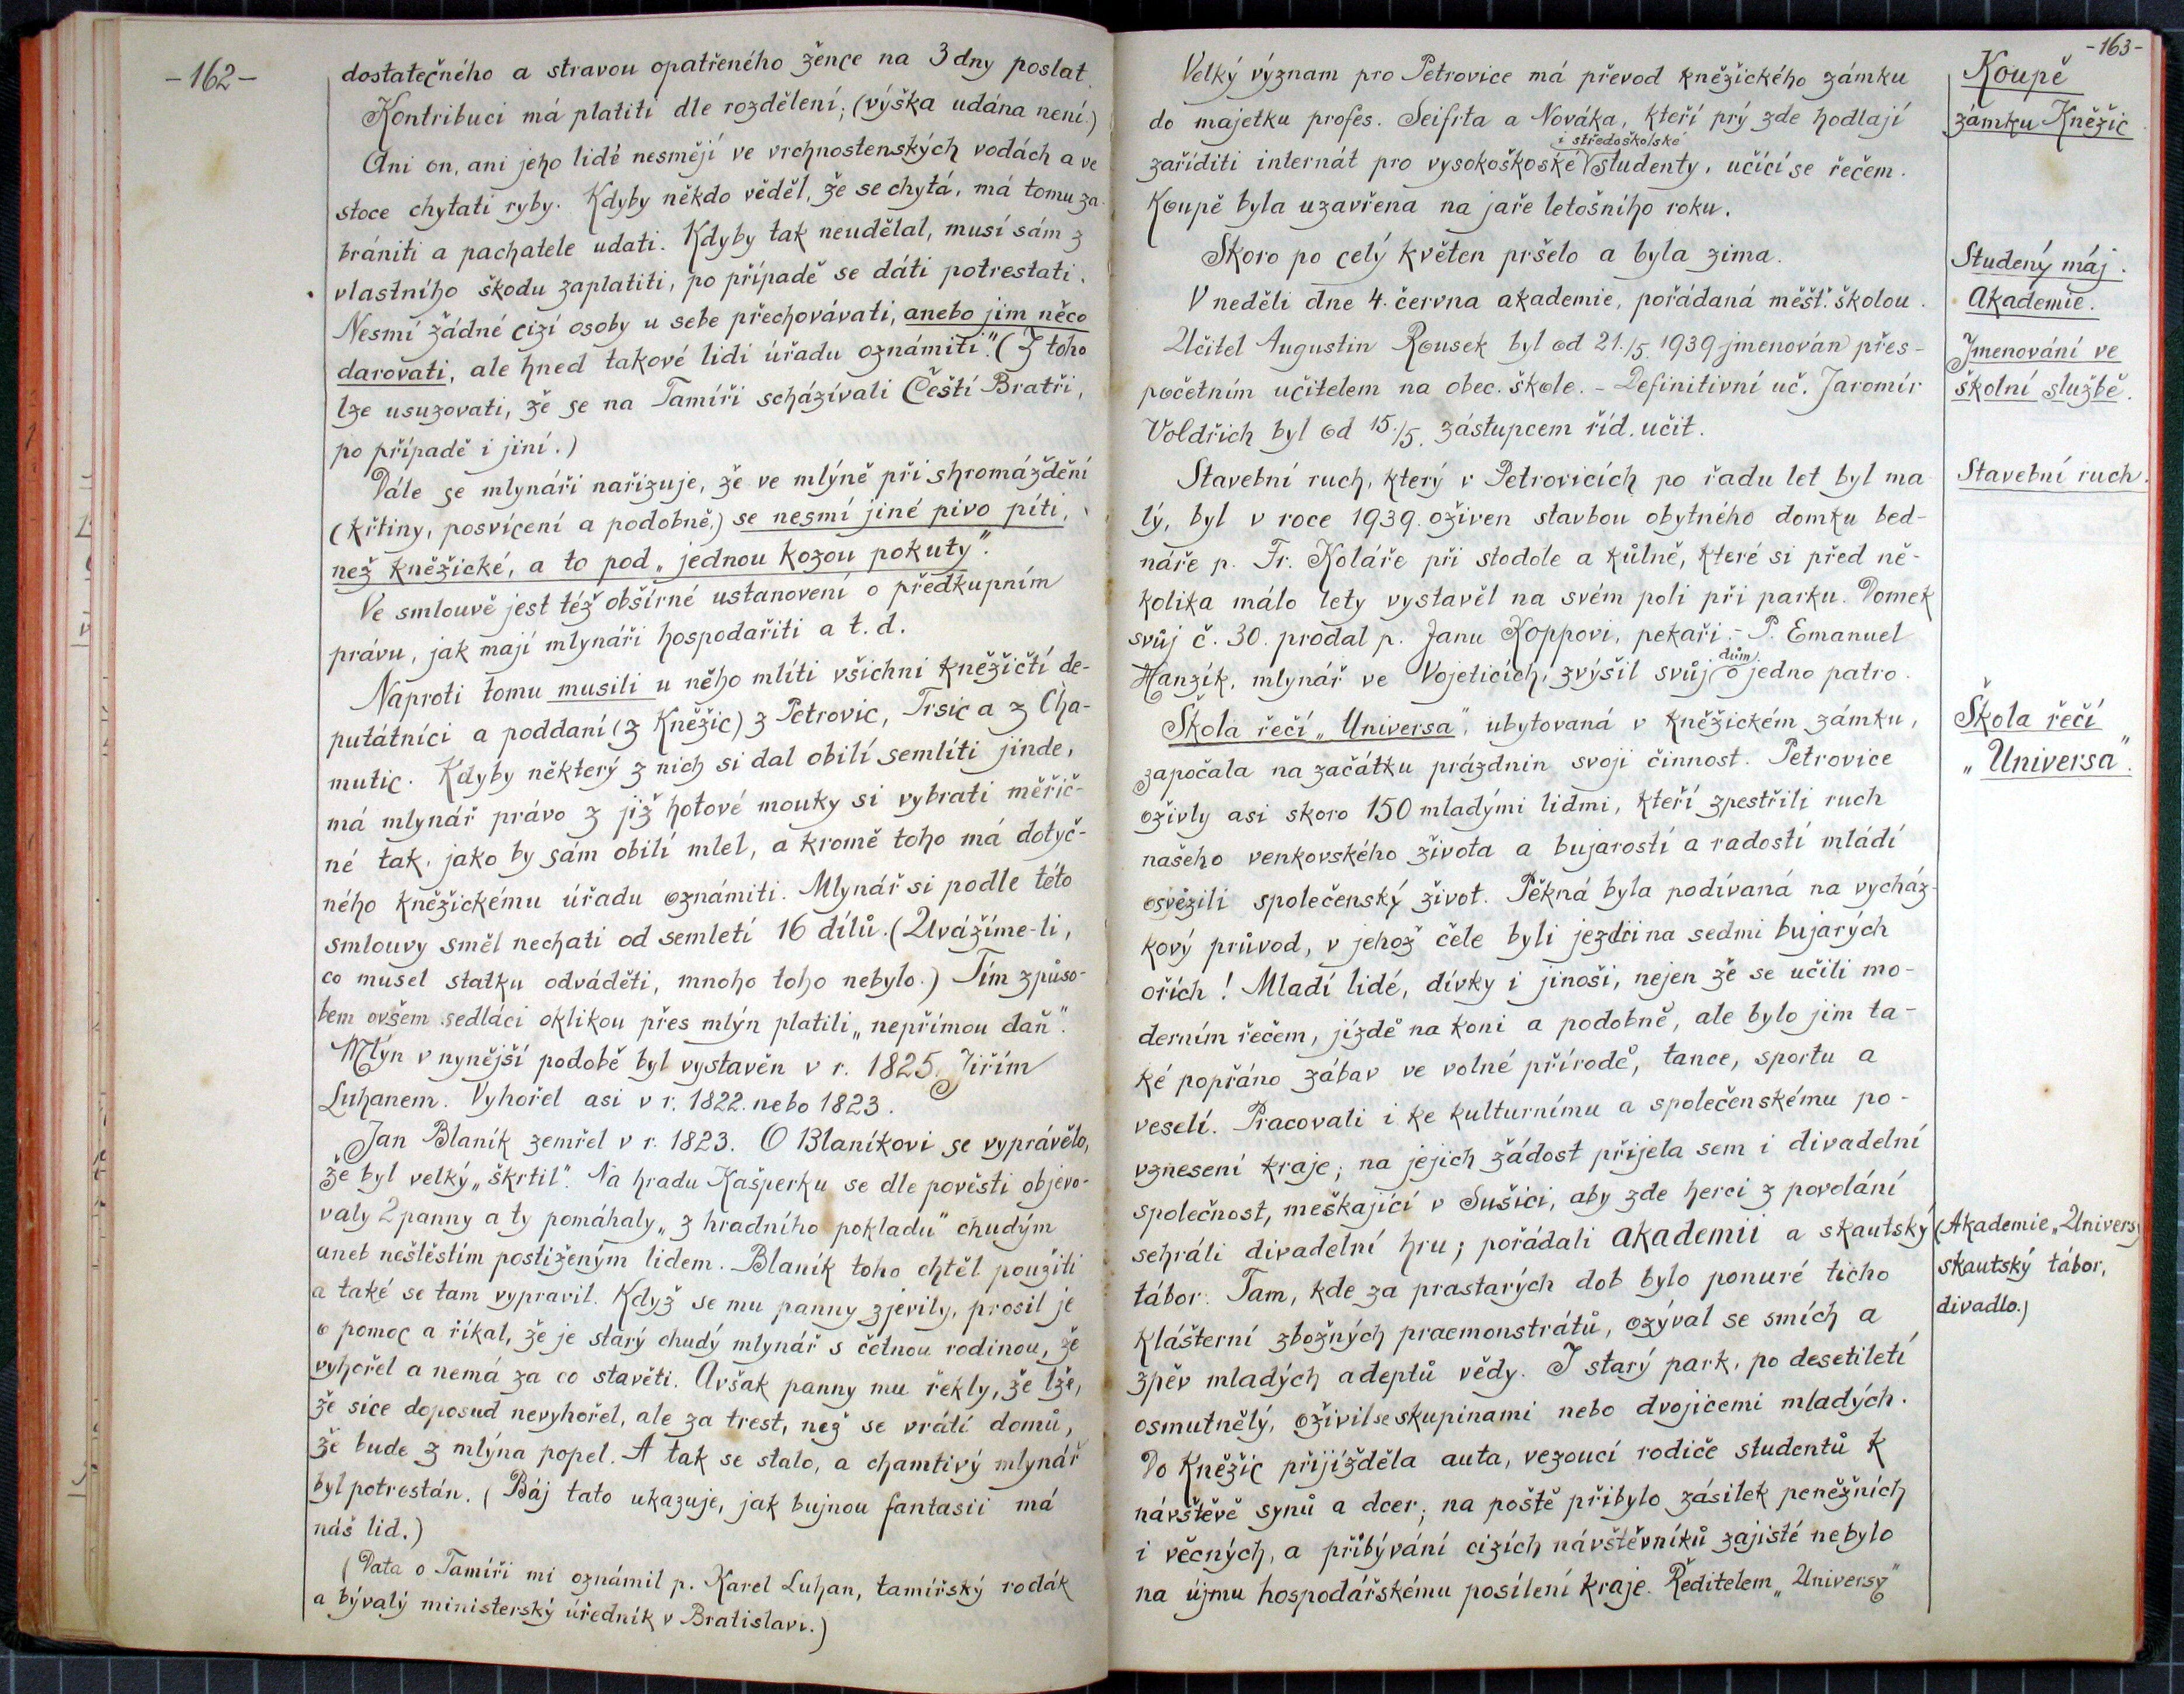 -162-
dostatečného a stravou opatřeného žence na 3 dny poslat.
Kontribuci má platiti dle rozdělení; (výška udána není.)
Ani on, ani jeho lidé nesmějí ve vrchnostenských vodách a ve
stoce chytati ryby. Kdyby někdo věděl, že se chytá, má tomu za-
brániti a pachatele udati. Kdyby tak neudělal, musí sám z
vlastního škodu zaplatiti, po případě se dáti potrestati.
Nesmí žádné cizí osoby u sebe přechovávati, anebo jim něco
darovati, ale hned takové lidi úřadu oznámiti." (Z toho
lze usuzovati, že se na Tamíři scházívali Čeští Bratři,
po případě i jiní.)
Dále se mlynáři nařizuje, že ve mlýně při shromáždění
(křtiny, posvícení a podobně,) se nesmí jiné pivo píti,
než kněžické, a to pod „jednou kozou pokuty".
Ve smlouvě jest též obšírné ustanovení o předkupním
právu, jak mají mlynáři hospodařiti a t. d.
Naproti tomu musili u něho mlíti všichni kněžičtí de-
putátníci a poddaní (z Kněžic) z Petrovic, Trsic a z Cha-
mutic. Kdyby některý z nich si dal obilí semlíti jinde,
má mlynář právo z již hotové mouky si vybrati měřič-
né tak, jako by sám obilí mlel, a kromě toho má dotyč-
ného kněžickému úřadu oznámiti. Mlynář si podle této
smlouvy směl nechati od semletí 16 dílů. (Uvážíme-li,
co musel statku odváděti, mnoho toho nebylo.) Tím způso-
bem ovšem sedláci oklikou přes mlýn platili „nepřímou daň".
Mlýn v nynější podobě byl vystavěn v r. 1825. Jiřím
Luhanem. Vyhořel asi v r. 1822. nebo 1823.
Jan Blaník zemřel v r. 1823. O Blaníkovi se vyprávělo,
že byl velký „škrtil". Na hradu Kašperku se dle pověsti objevo-
valy 2 panny a ty pomáhaly „z hradního pokladu" chudým
aneb neštěstím postiženým lidem. Blaník toho chtěl použíti
a také se tam vypravil. Když se mu panny zjevily, prosil je
o pomoc a říkal, že je starý chudý mlynář s četnou rodinou, že
vyhořel a nemá za co stavěti. Avšak panny mu řekly, že lže,
že sice doposud nevyhořel, ale za trest, než se vrátí domů,
že bude z mlýna popel. A tak se stalo, a chamtivý mlynář
byl potrestán. (Báj tato ukazuje, jak bujnou fantasii má
náš lid.)
(Data o Tamíři mi oznámil p. Karel Luhan, tamířský rodák
a bývalý ministerský úředník v Bratislavi.)
-163-
Velký význam pro Petrovice má převod kněžického zámku
do majetku profes. Seifrta a Nováka, kteří prý zde hodlají
i středoškolské
zaříditi internát pro vysokoškoské studenty, učící se řečem.
Koupě byla uzavřena na jaře letošního roku.
Skoro po celý květen pršelo a byla zima.
V neděli dne 4. června akademie, pořádaná měšť. školou.
Učitel Augustin Rousek byl od 21./5. 1939 jmenován přes-
početním učitelem na obec. škole. - Definitivní uč. Jaromír
Voldřich byl od 15./5. zástupcem říd. učit.
Stavební ruch, který v Petrovicích po řadu let byl ma
lý, byl v roce 1939. oživen stavbou obytného domku bed-
náře p. Fr. Koláře při stodole a kůlně, které si před ně-
kolika málo lety vystavěl na svém poli při parku. Domek
svůj č. 30. prodal p. Janu Koppovi, pekaři. - P. Emanuel
dům
Hanzík, mlynář ve Vojeticích, zvýšil svůj o jedno patro.
Škola řečí „Universa", ubytovaná v kněžickém zámku,
započala na začátku prázdnin svoji činnost. Petrovice
oživly asi skoro 150 mladými lidmi, kteří zpestřili ruch
našeho venkovského života a bujarostí a radostí mládí
osvěžili společenský život. Pěkná byla podívaná na vycház-
kový průvod, v jehož čele byli jezdci na sedmi bujarých
ořích! Mladí lidé, dívky i jinoši, nejen že se učili mo-
derním řečem, jízdě na koni a podobně, ale bylo jim ta-
ké popřáno zábav ve volné přírodě, tance, sportu a
veselí. Pracovali i ke kulturnímu a společenskému po-
vznesení kraje; na jejich žádost přijela sem i divadelní
společnost, meškající v Sušici, aby zde herci z povolání
sehráli divadelní hru; pořádali akademii a skautský
tábor. Tam, kde za prastarých dob bylo ponuré ticho
klášterní zbožných praemonstrátů, ozýval se smích a
zpěv mladých adeptů vědy. I starý park, po desetiletí
osmutnělý, oživil se skupinami nebo dvojicemi mladých.
Do Kněžic přijížděla auta, vezoucí rodiče studentů k
návštěvě synů a dcer; na poště přibylo zásilek peněžních
i věcných, a přibývání cizích návštěvníků zajisté nebylo
na újmu hospodářskému posílení kraje. Ředitelem „Universy"
Koupě
zámku Kněžic.
Studený máj.
Akademie.
Jmenování ve
školní službě.
Stavební ruch.
Škola řečí
„Universa".
(Akademie „Universy
skautský tábor,
divadlo.)